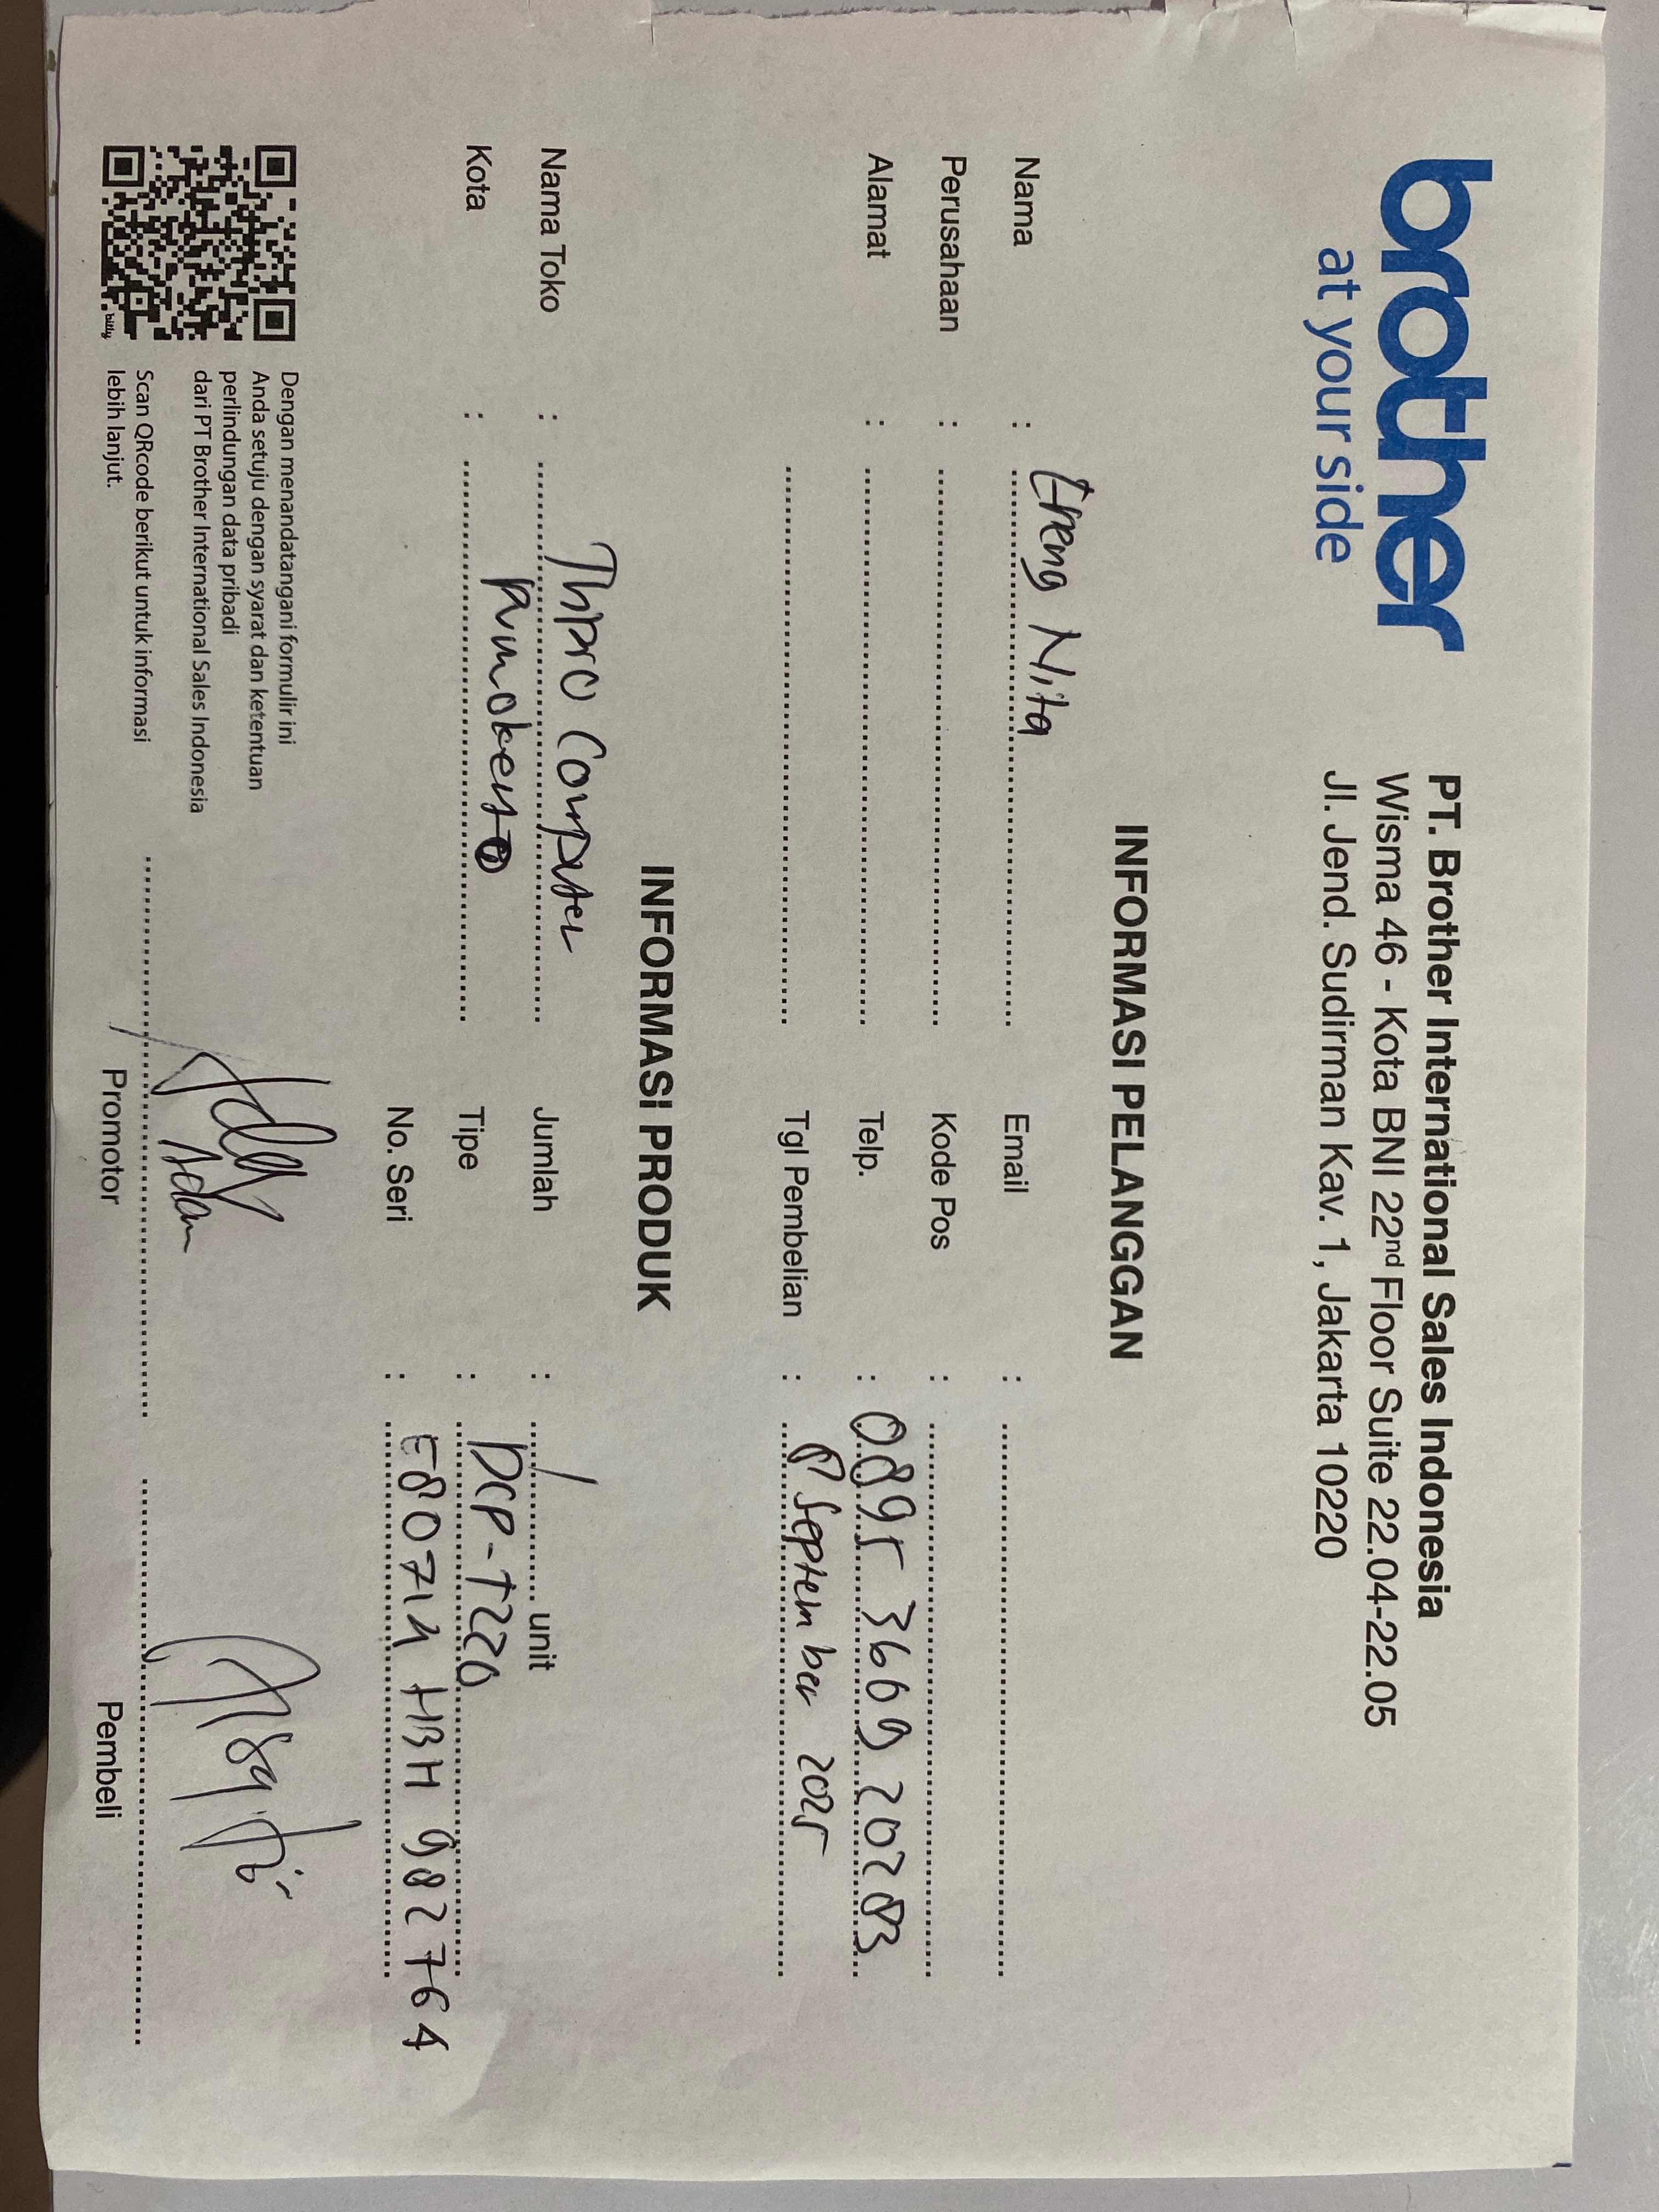 brother
at your side
PT. Brother International Sales Indonesia
Wisma 46 - Kota BNI 22nd Floor Suite 22.04-22.05
Jl. Jend. Sudirman Kav. 1, Jakarta 10220
INFORMASI PELANGGAN
Nama : Nita
Perusahaan :
Alamat :
Email :
Kode Pos :
Telp. : 0895 3609 20283
Tgl Pembelian : 8 September 2025
INFORMASI PRODUK
Nama Toko : Computer
Kota : Purwokerto
Jumlah : 1 unit
Tipe : DCP-T220
No. Seri : E80714 H3H 982764
Dengan menandatangani formulir ini
Anda setuju dengan syarat dan ketentuan
perlindungan data pribadi
dari PT Brother International Sales Indonesia
Scan QRcode berikut untuk informasi
lebih lanjut.
bitly
Adam
Promotor
Pembeli